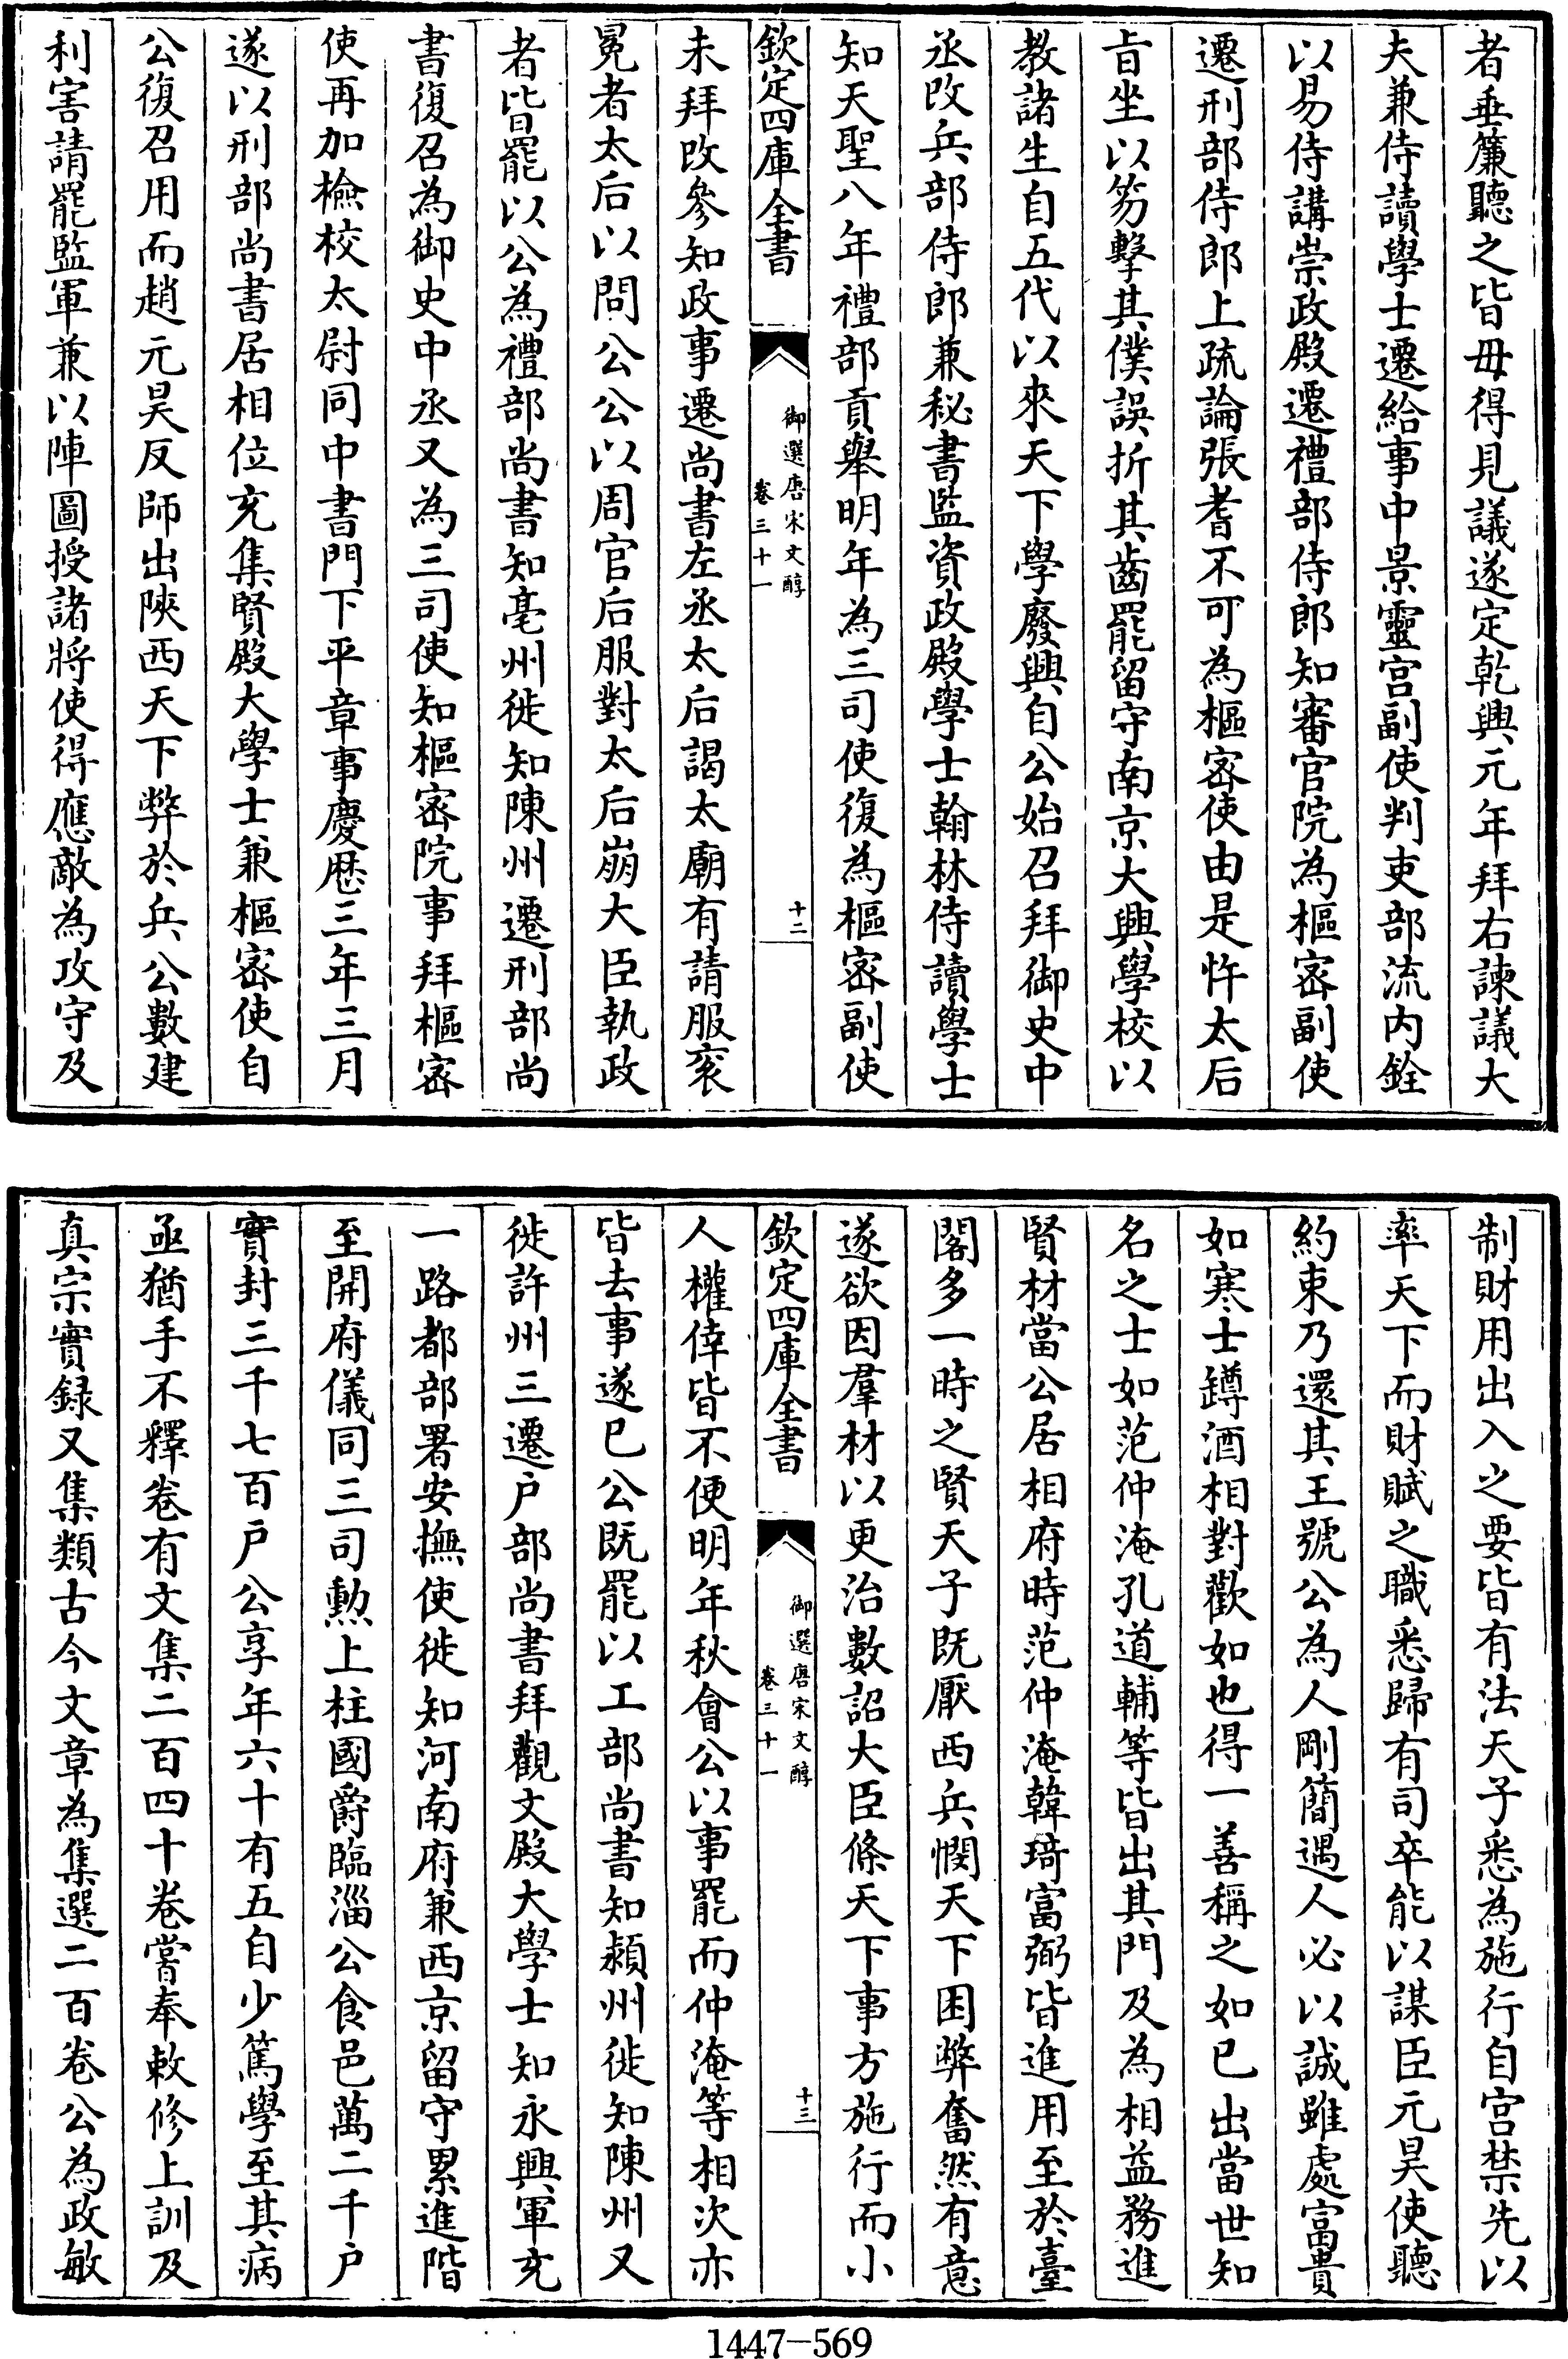 者垂簾聽之皆毋得見議遂定乾興元年拜右諫議大
夫兼侍讀學士遷給事中景靈宮副使判吏部流内銓
以易侍講崇政殿遷禮部侍郎知審官院為樞密副使
遷刑部侍郎上疏論張耆不可為樞密使由是忤太后
㫖坐以笏擊其僕誤折其齒罷留守南京大興學校以
教諸生自五代以來天下學廢興自公始召拜御史中
丞改兵部侍郎兼秘書監資政殿學士翰林侍讀學士
知天聖八年禮部貢舉明年為三司使復為樞密副使
欽定四庫全書
御選唐宋文醇
卷三十一
十二
未拜改參知政事遷尚書左丞太后謁太廟有請服衮
冕者太后以問公公以周官后服對太后崩大臣執政
者皆罷以公為禮部尚書知亳州徙知陳州遷刑部尚
書復召為御史中丞又為三司使知樞密院事拜樞密
使再加檢校太尉同中書門下平章事慶厯三年三月
遂以刑部尚書居相位充集賢殿大學士兼樞密使自
公復召用而趙元昊反師出陝西天下弊於兵公數建
利害請罷監軍兼以陣圖授諸將使得應敵為攻守及
制財用出入之要皆有法天子悉為施行自宮禁先以
率天下而財賦之職悉歸有司卒能以謀臣元昊使聽
約束乃還其王號公為人剛簡遇人必以誠雖處富貴
如寒士罇酒相對歡如也得一善稱之如已出當世知
名之士如范仲淹孔道輔等皆出其門及為相益務進
賢材當公居相府時范仲淹韓琦富弼皆進用至於臺
閣多一時之賢天子既厭西兵憫天下困弊奮然有意
遂欲因羣材以更治數詔大臣條天下事方施行而小
欽定四庫全書
御選唐宋文醇
卷三十一
十三
人權倖皆不便明年秋會公以事罷而仲淹等相次亦
皆去事遂已公既罷以工部尚書知潁州徙知陳州又
徙許州三遷户部尚書拜觀文殿大學士知永興軍充
一路都部署安撫使徙知河南府兼西京留守累進階
至開府儀同三司勲上柱國爵臨淄公食邑萬二千户
實封三千七百户公享年六十有五自少篤學至其病
亟猶手不釋卷有文集二百四十卷嘗奉敕修上訓及
真宗實録又集類古今文章為集選二百卷公為政敏
1447-569